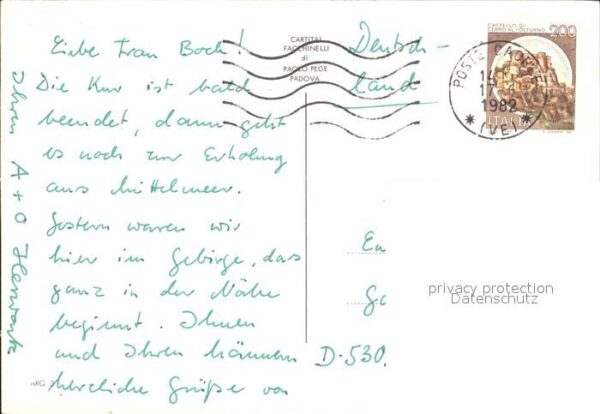 Liebe Frau Bock!
Die Kur ist bald
beendet, dann geht
es noch zur Erholung
ans Mittelmeer.
Gestern waren wir
hier im Gebirge, das
ganz in der Nähe
beginnt. Ihnen
und Ihren Männern
herzliche Grüße von
Ihren A + O
CARTITAL
FACCHINELLI
di
PAOLO PEGE
PADOVA
Deutsch-
land
CASTELLO DI
CERRO AL VOLTURNO
200
ITALIA
POSTE
1982
* (VE) *
D-530
privacy protection
Datenschutz